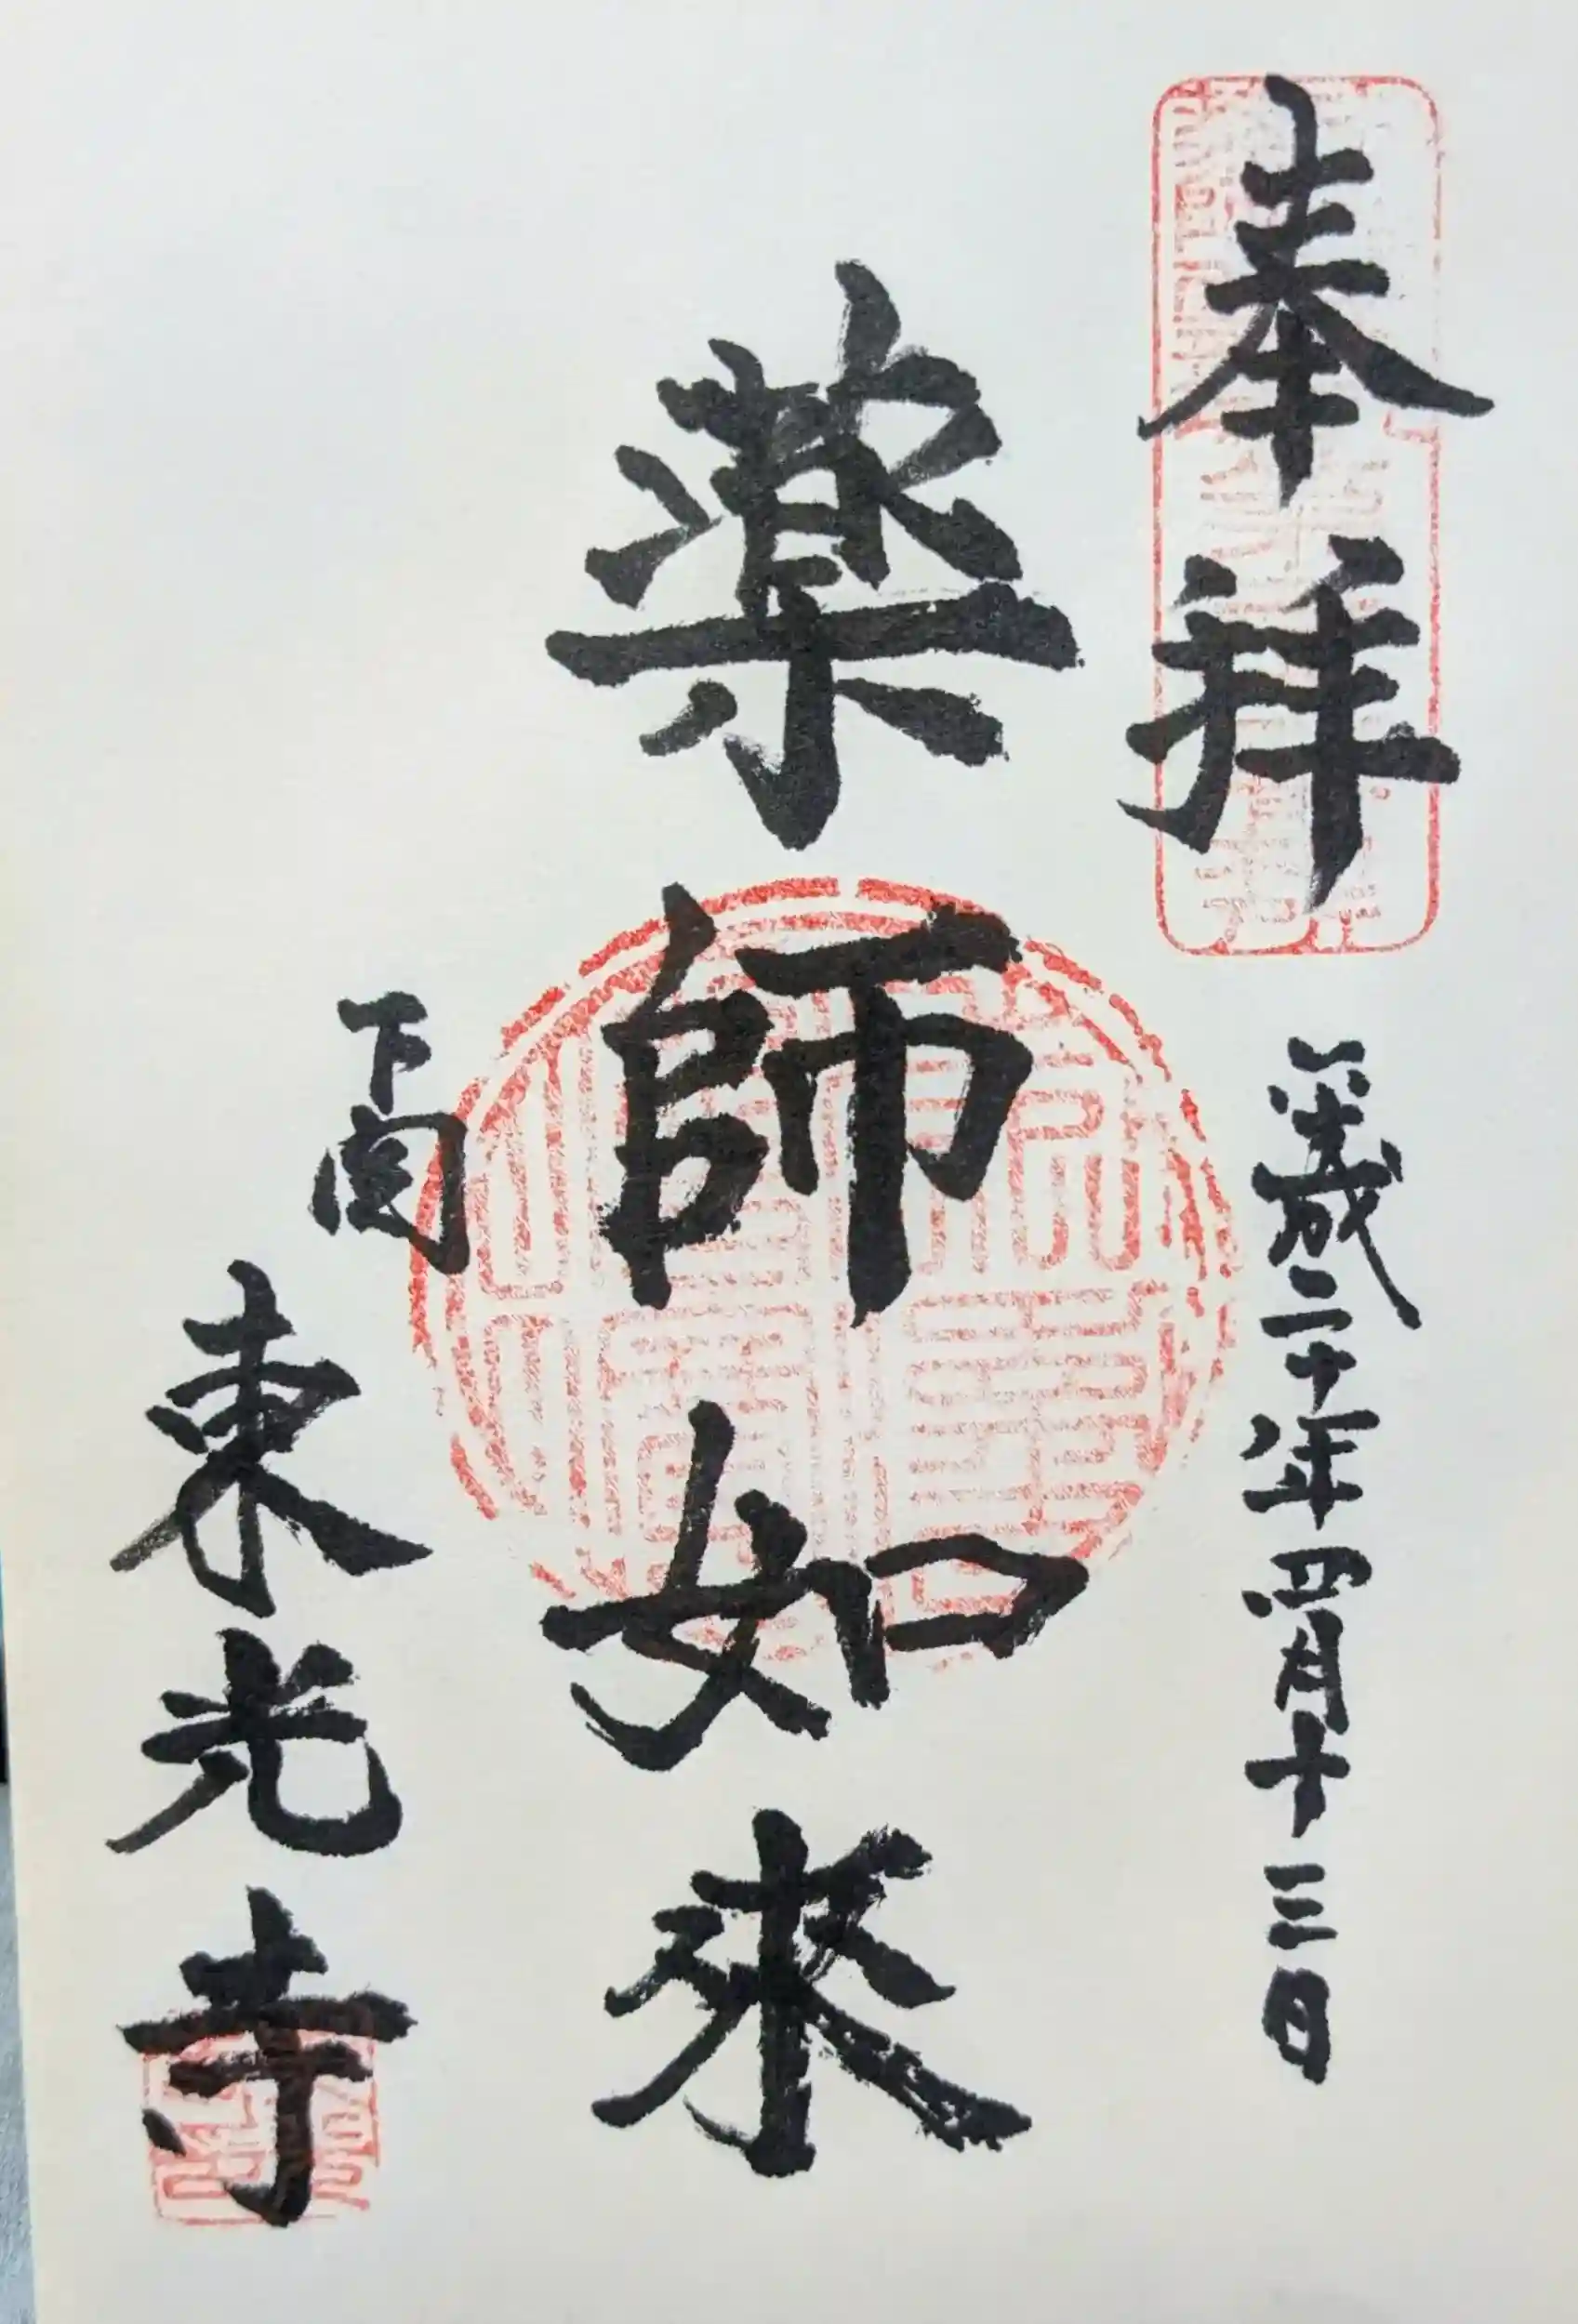 奉拝
平成二十年四月十三日
薬師如来
下関
東光寺